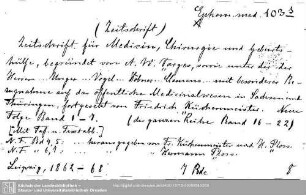 Ephem. med. 103 s
(Zeitschrift)
Zeitschrift für Medicin, Chirurgie und Geburts-
hülfe, begründet von A. W. Varges, sowie unter der
Herren Unger - Vogel - Clemens - mit besonderer Be-
zugnahme auf das öffentliche Medicinalwesen in Sachsen und
Thüringen, fortgesetzt von Friedrich Küchenmeister. Neue
Folge Band 1 - 7. (der ganzen Reihe Band 16 - 22)
N. F. Bd 4, 5: herausgegeben v. Fr. Küchenmeister und H. Ploss
N. F. " 6, 7: " " Hermann Ploss.
Leipzig, 1862 - 68 7 Bde 8